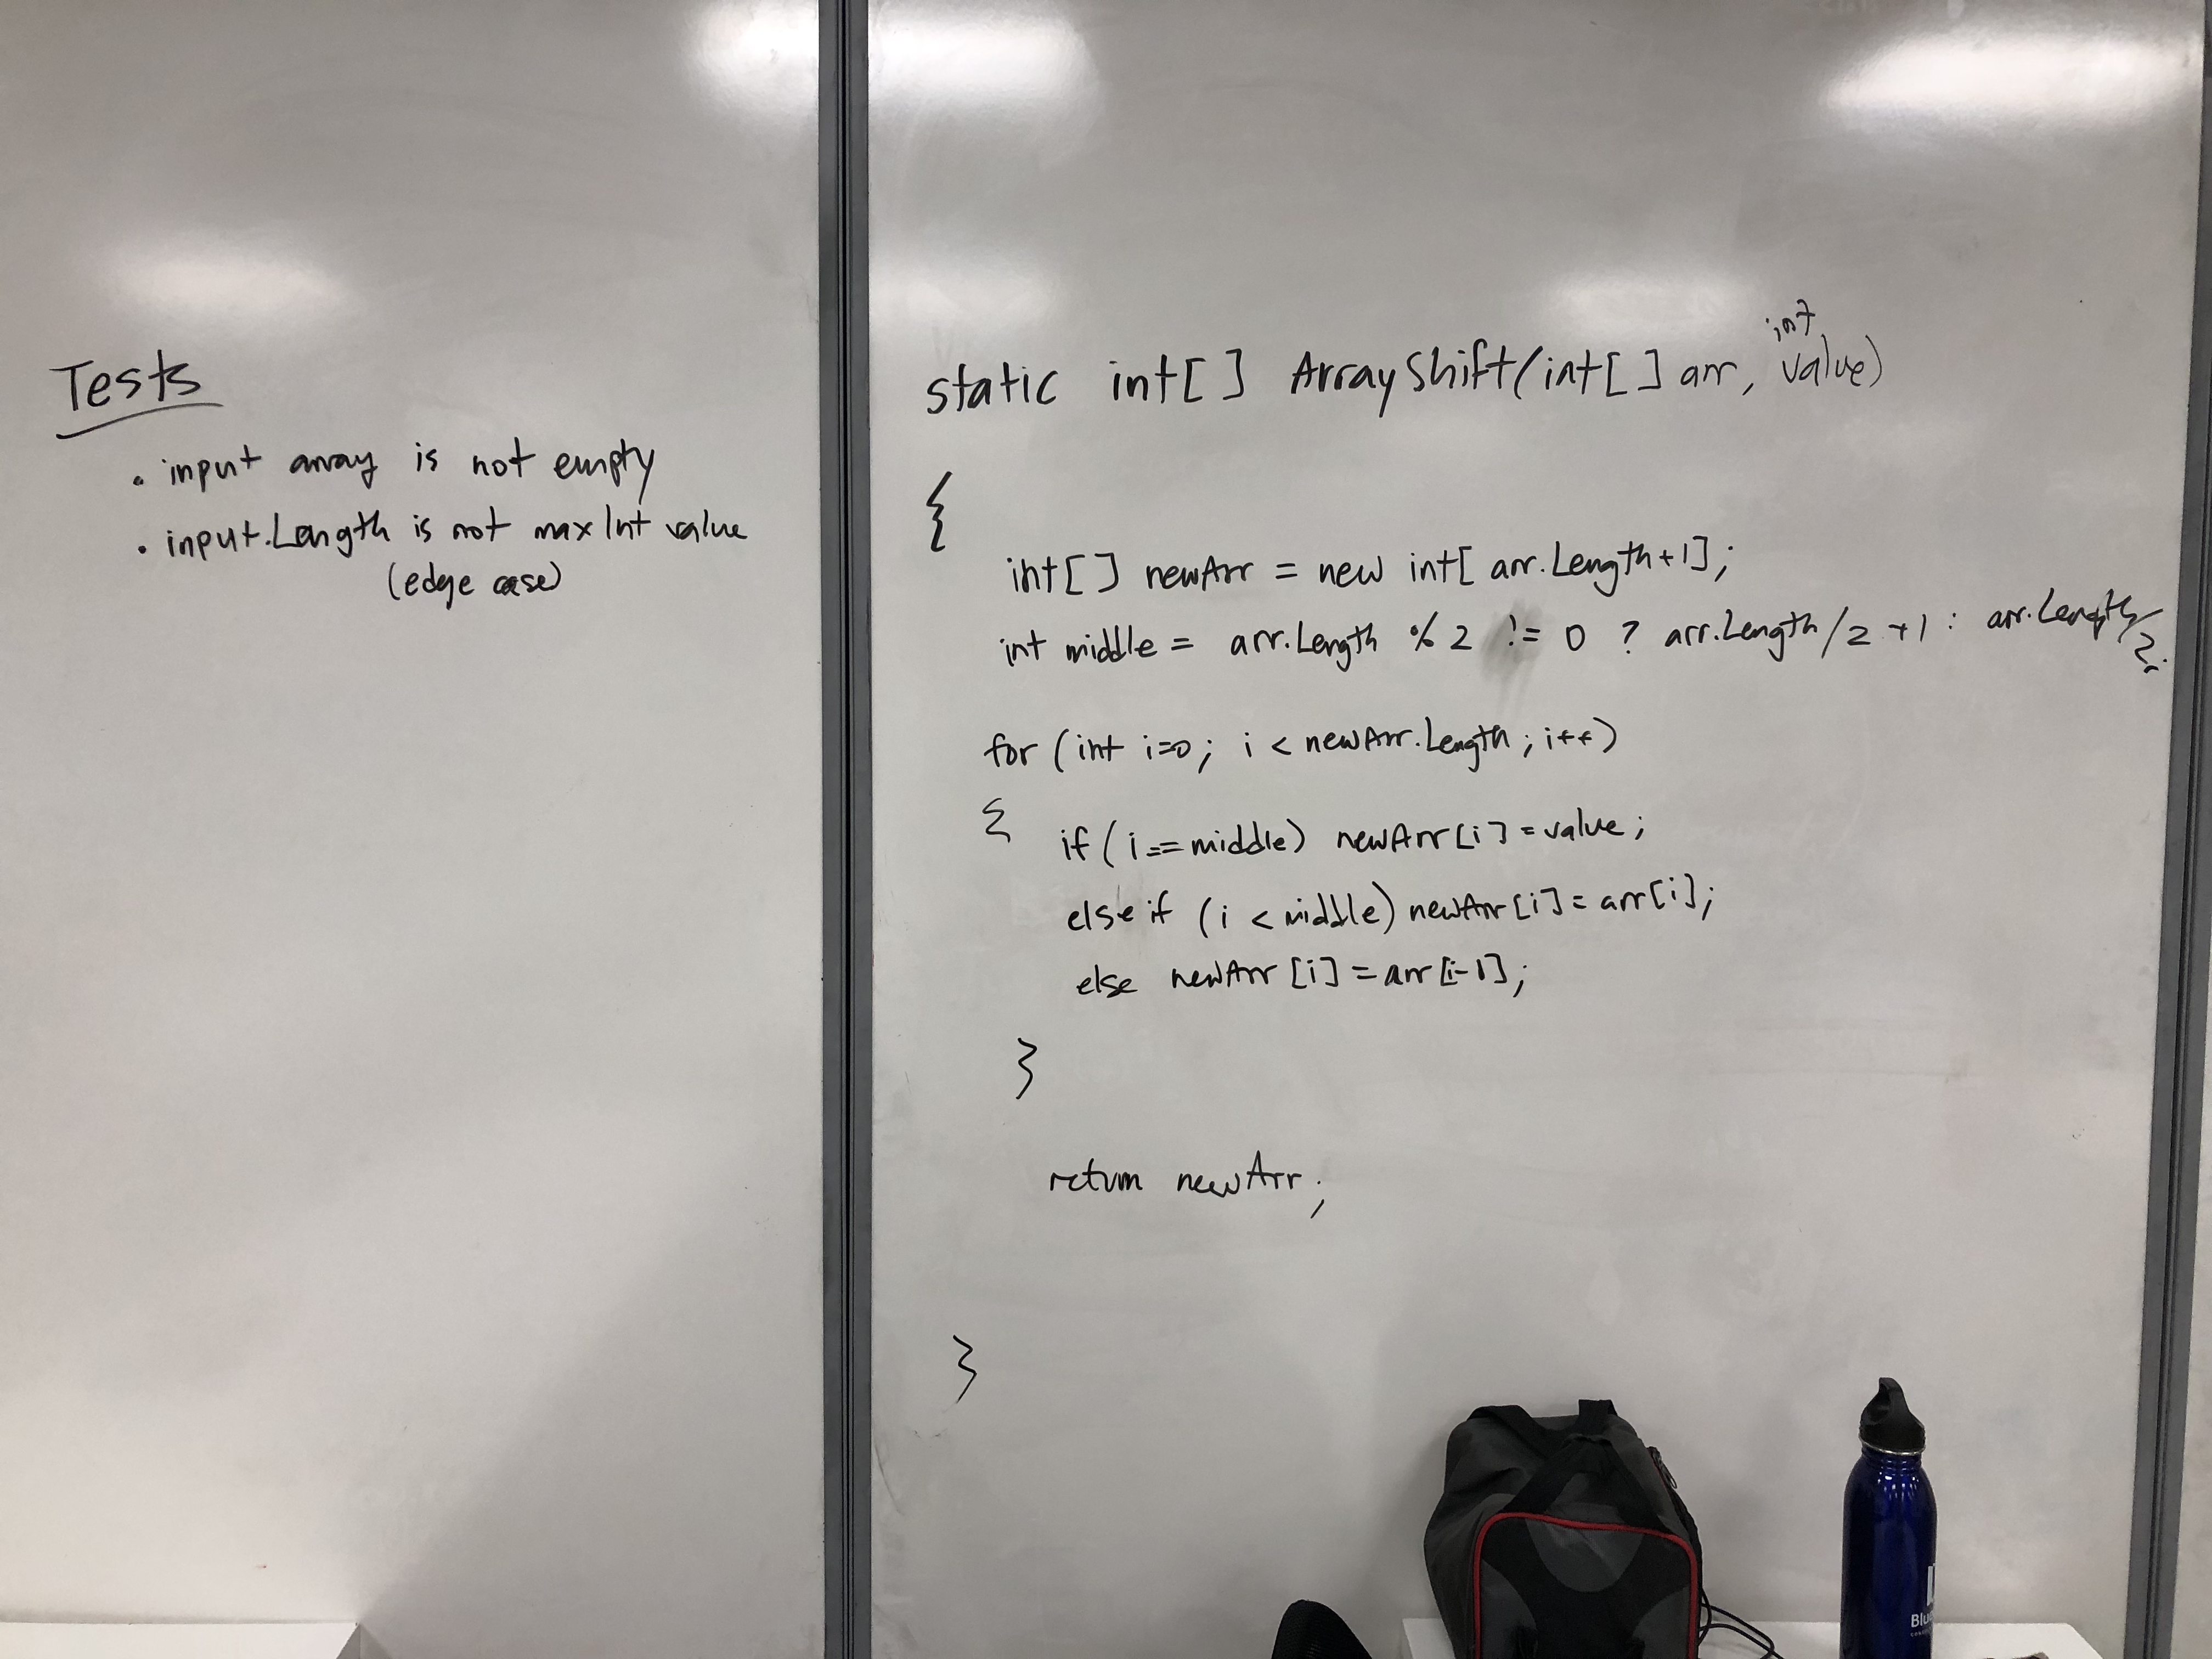 Tests
• input array is not empty
• input.Length is not max Int value
(edge case)
int
static int[] ArrayShift(int[] arr, value)
{
int[] newArr = new int[arr.Length+1];
int middle = arr.Length % 2 != 0 ? arr.Length/2 +1 : arr.Length/2;
for (int i=0; i < newArr.Length; i++)
{ if (i == middle) newArr[i] = value;
else if (i < middle) newArr[i] = arr[i];
else newArr[i] = arr[i-1];
}
return newArr;
}